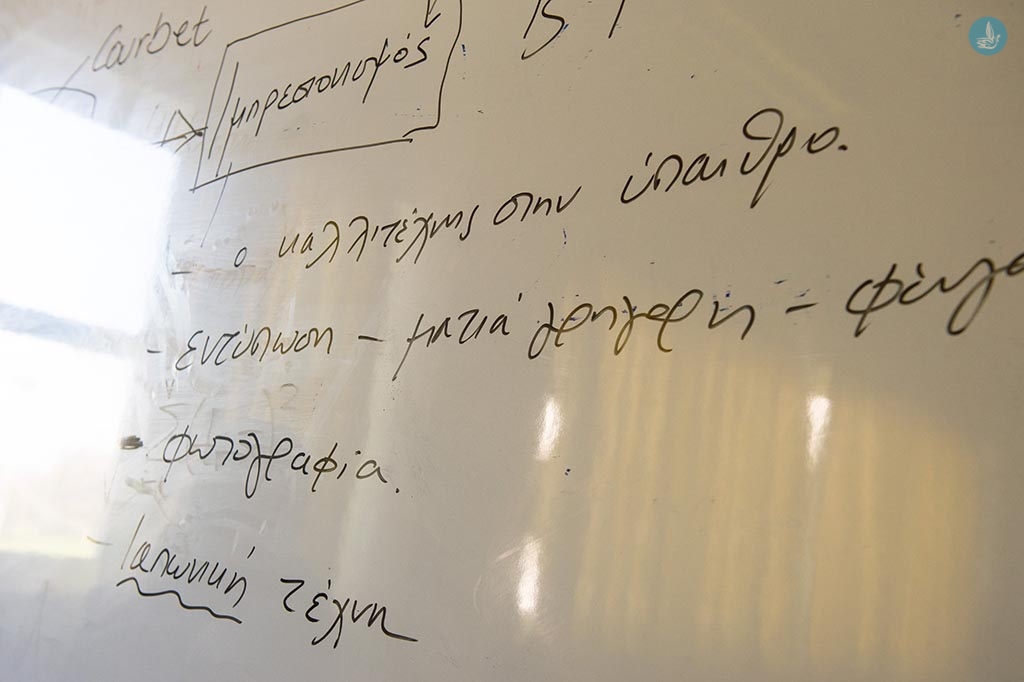 Courbet
ιμπρεσιονισμός
- ο καλλιτέχνης στην ύπαιθρο.
- εντύπωση - ματιά γρήγορη -
- φωτογραφία.
- Ιαπωνική τέχνη